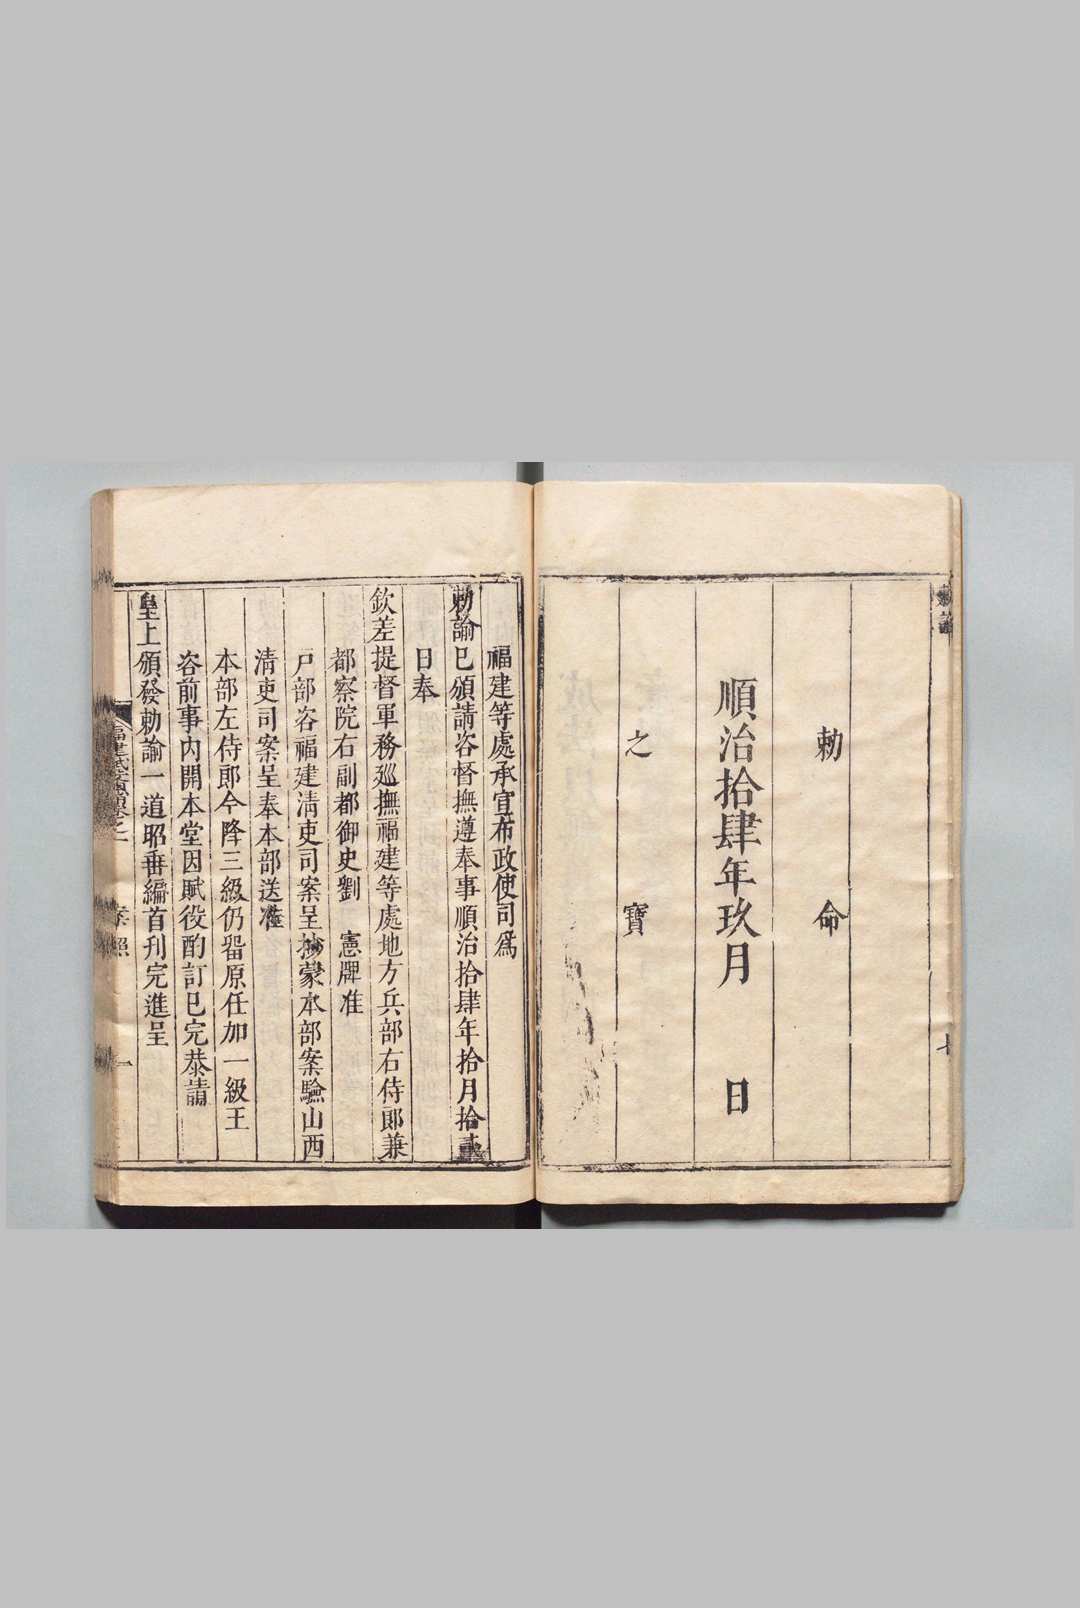 敕諭
敕命
順治拾肆年玖月 日
之寶
福建等處承宣布政使司爲
敕諭已頒請咨督撫遵奉事順治拾肆年拾月拾
日奉
欽差提督軍務廵撫福建等處地方兵部右侍郎兼
都察院右副都御史劉 憲牌准
戸部咨福建清吏司案呈抄蒙本部案驗山西
清吏司案呈奉本部送准
本部左侍郎今降三級仍畱原任加一級王
咨前事内開本堂因賦役酌訂已完恭請
皇上頒發勅諭一道昭垂編首刊完進呈
福建
案照
一